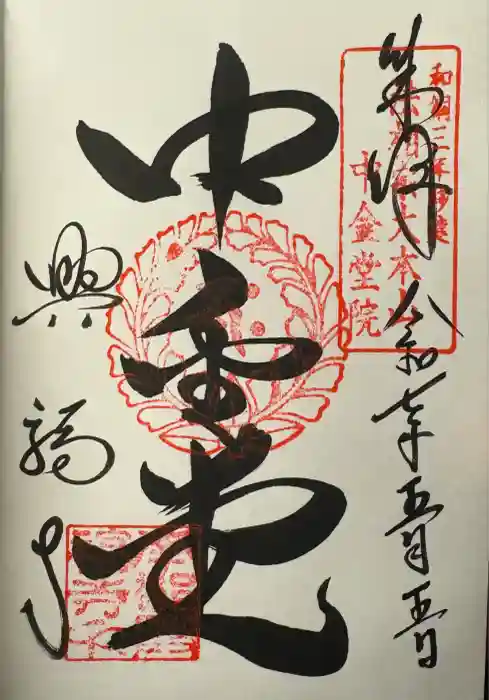 奉拝 令和七年五月五日
和銅三年創建
法相宗大本山
中金堂院
中金堂
興福寺